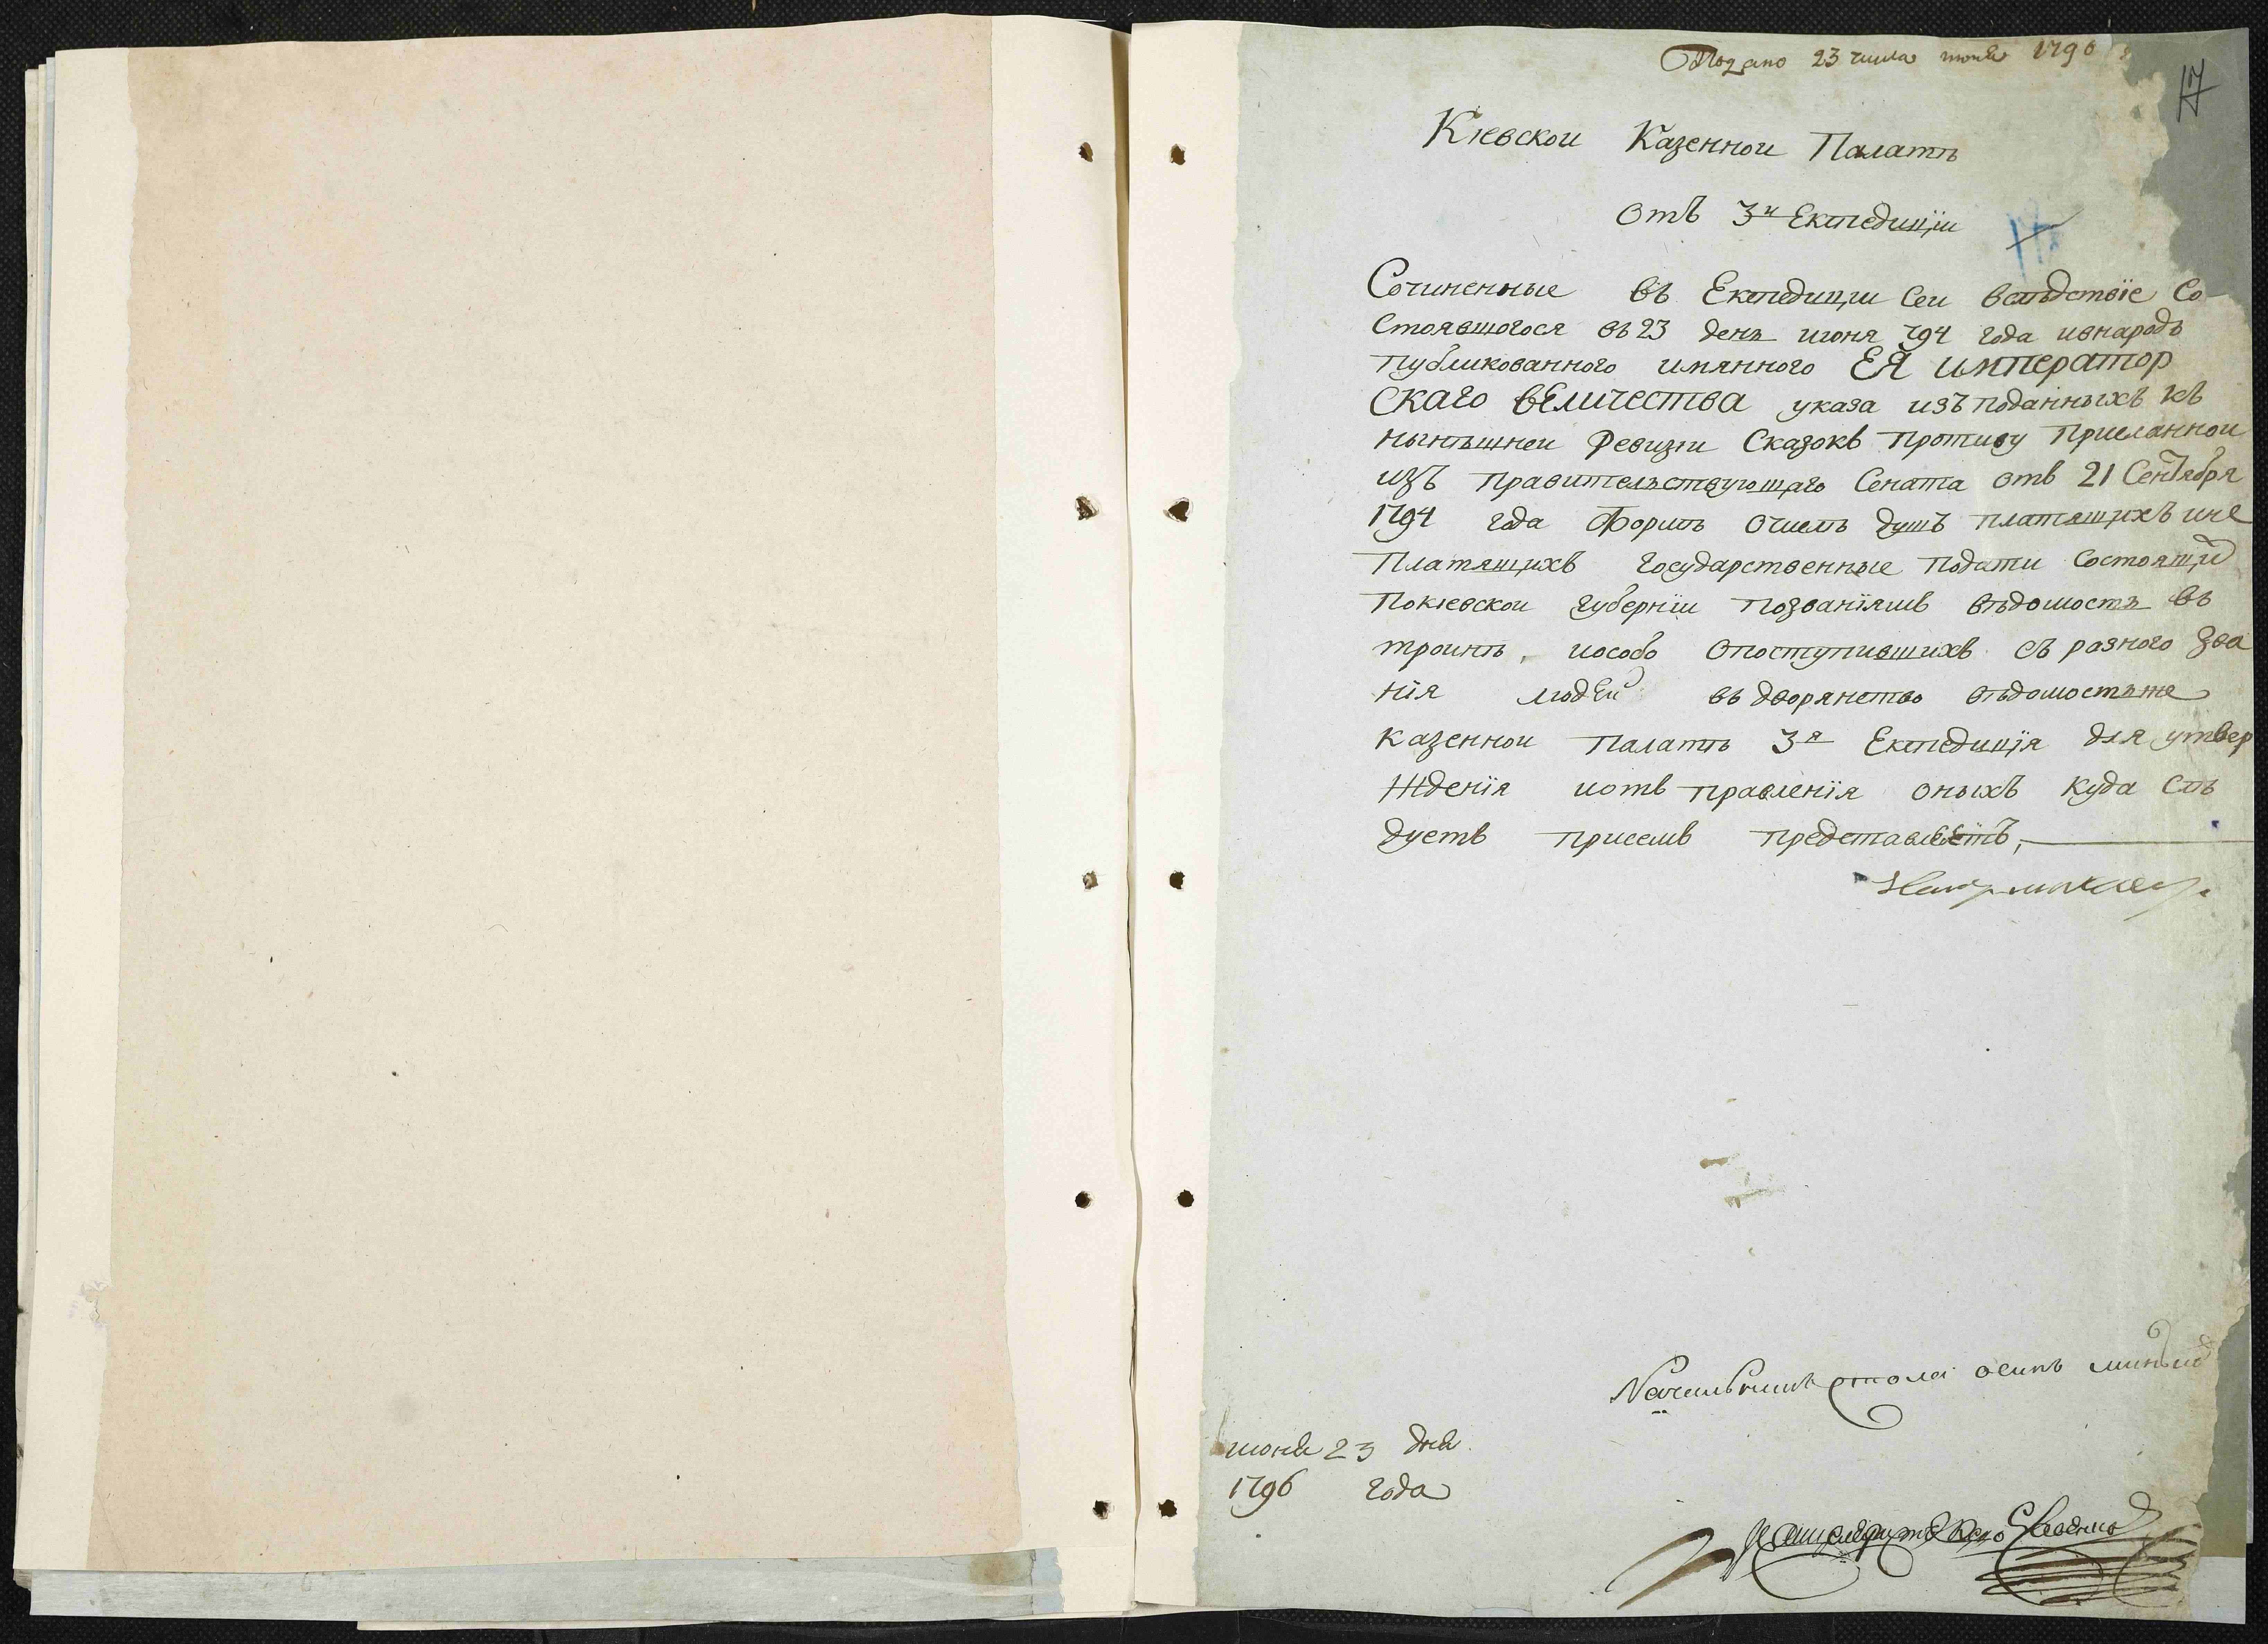 Подано 23 числа июня 1796
17
Кіевскои Казеннои Палатѣ
отъ 3й Експедиціи
Сочиненные въ Експедиціи сеи вслѣдствіе со
стоявшогося въ 23 день июня 794 года ивнародъ
публикованного имянного ЕЯ император
скаго вЕличества указа изъ поданныхъ къ
нынѣшнеи Ревизіи Сказокъ противу присланнои
изъ правительствующаго Сената отъ 21 Сентября
1794 года формѣ очислѣ душъ платящихъ ине
платящихъ государственные подати состоящи
покіевскои губерніи позваніямъ вѣдомость въ
троинѣ, иособо опоступившихъ съ разного зва
нія людей въ дворянство вѣдомостьже
казеннои палатѣ 3я Експедиція для утвер
жденія иотъ правленія оныхъ куда слѣ
дуетъ присемъ представляетъ,
Начальникъ стола осипъ
июня 23 дня
1796 года